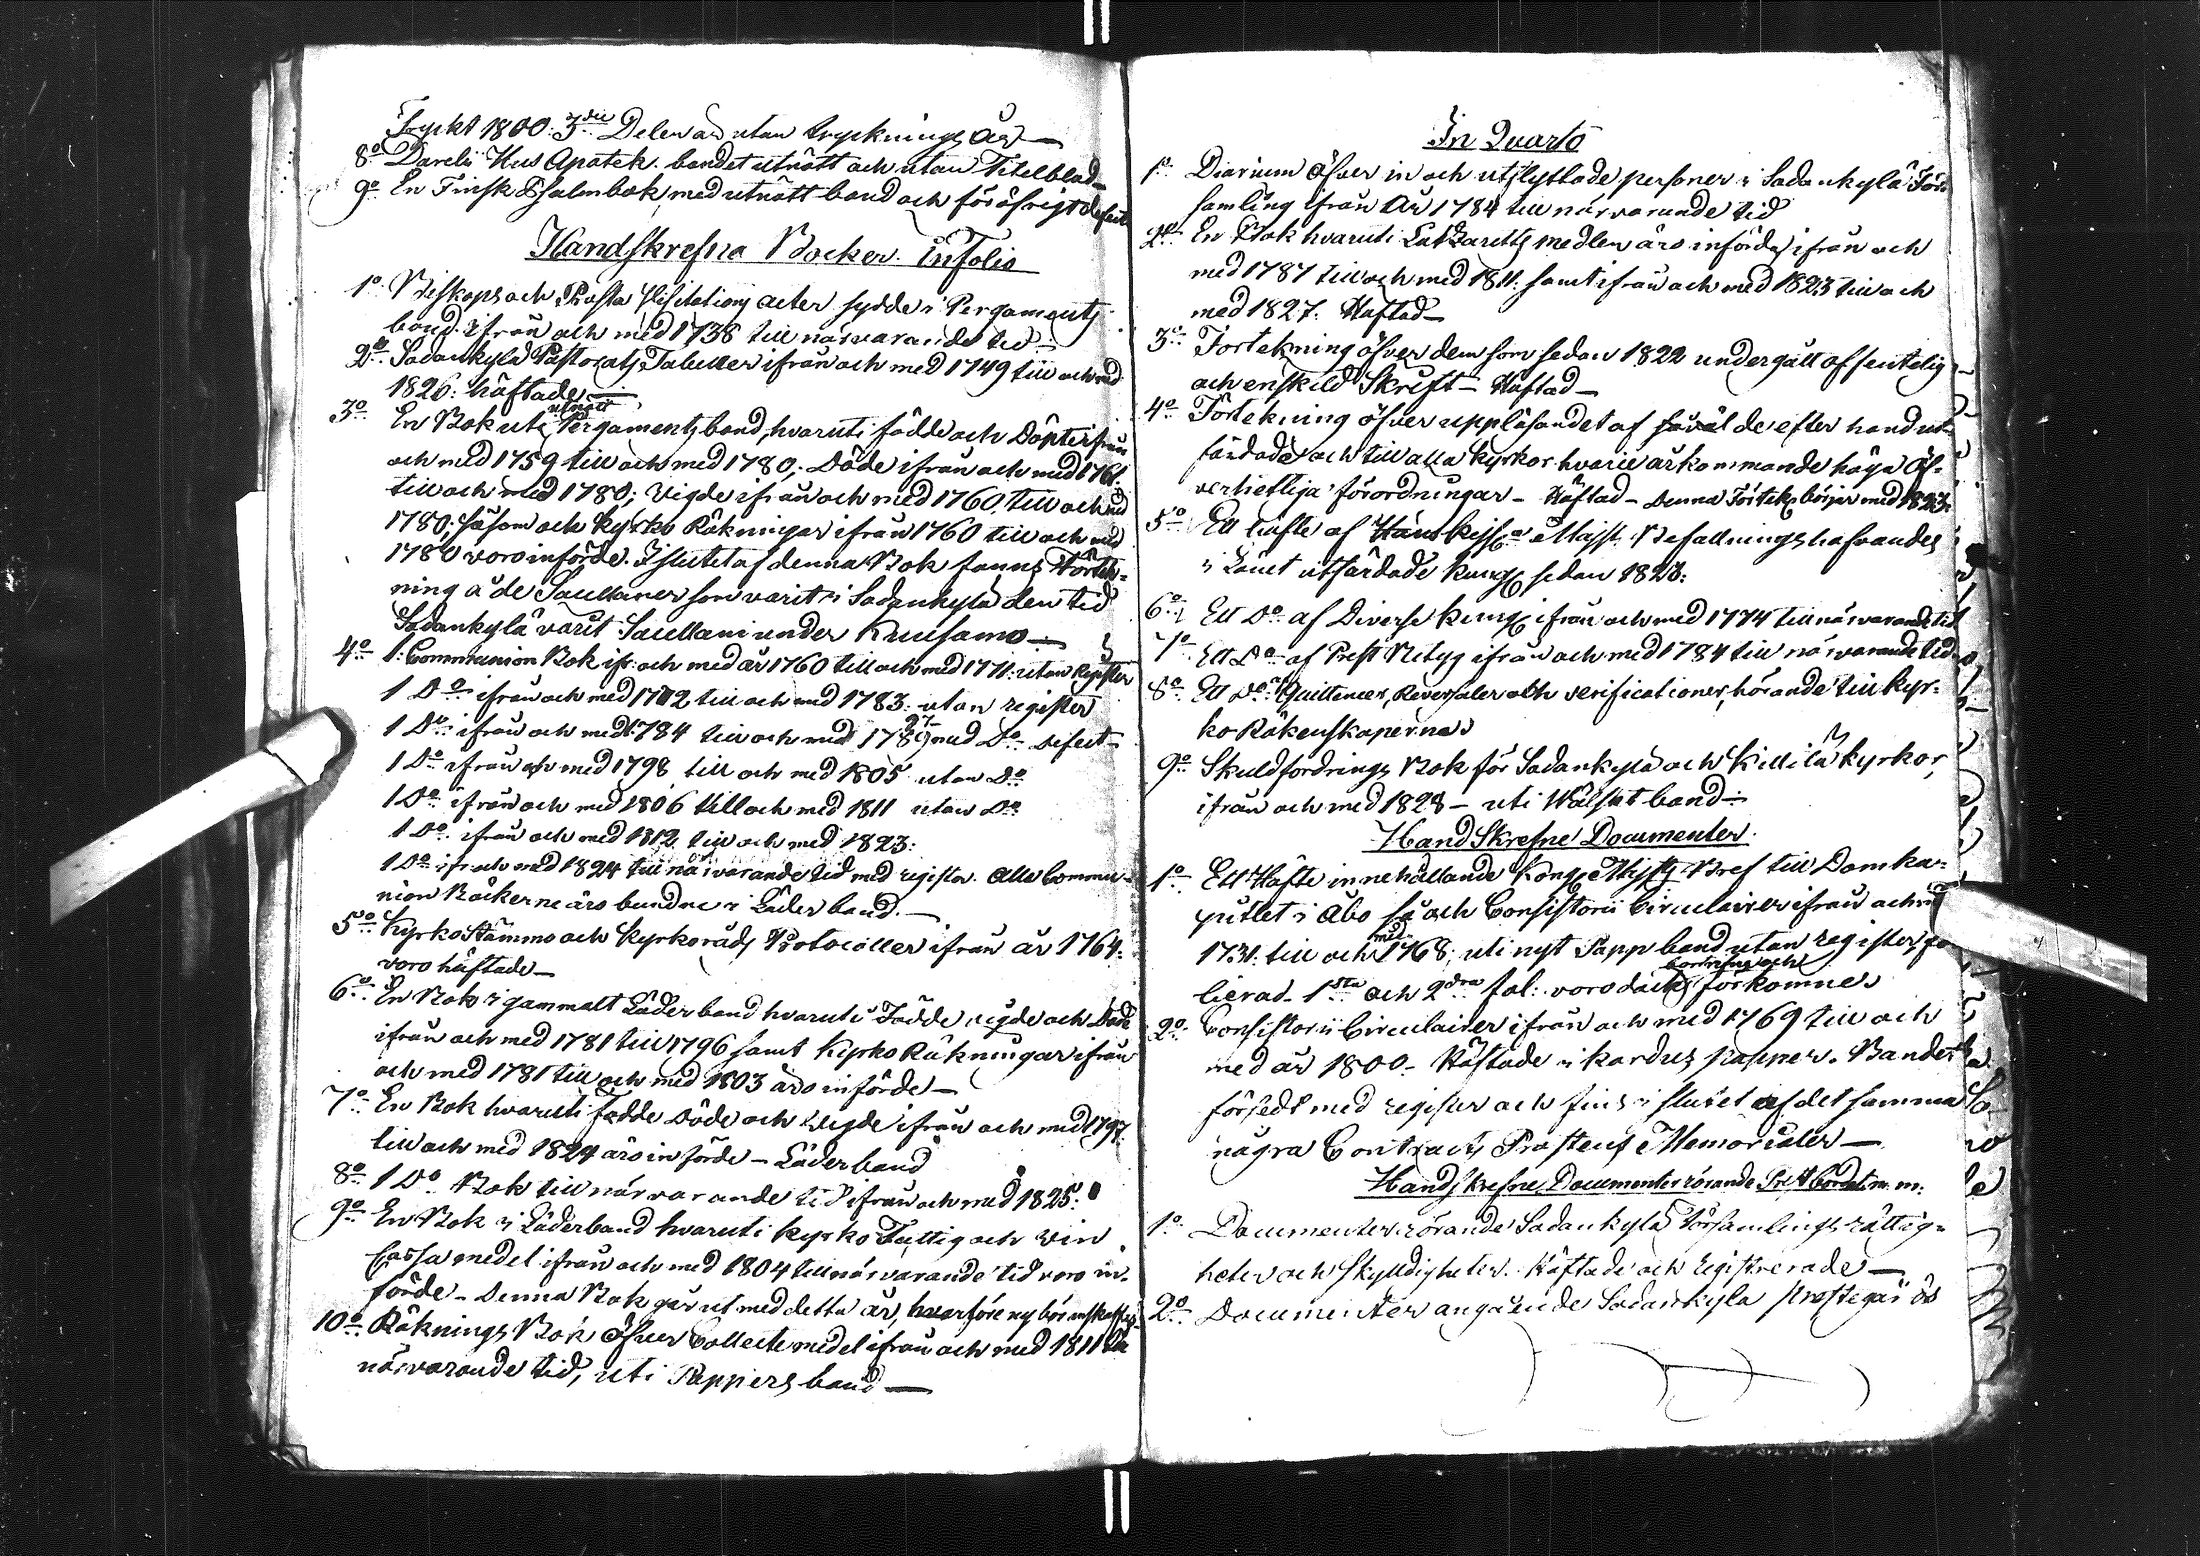 Tryckt 1800. 3die Delen är utan tryckningsår —
8o Darelii Hus Apotek. bandet utnött och utan Titelblad —
9o En Finsk Psalmbok, med utnött band och för öfrigt defect
Handskrefna Böcker. in Folio
1o Biskops och Prosta Visitations acter sydde i Pergaments
band. ifrån och med 1738 till närvarande tid —
2o Sodankylä Pastorats Tabeller ifrån och med 1749 till och med
1826: häftade —
3o En Bok uti utnött Pergaments band, hvaruti födde och Döpte ifrån
och med 1759 till och med 1780, Döde ifrån och med 1761
till och med 1780; Vigde ifrån och med 1760 till och med
1780; såsom och Kyrko Räkningar ifrån 1760 till och med
1780 voro införde. I slutet af denna Bok fanns Förtek-
ning å de Saellaner som varit i Sodankylä den tid
Sodankylä varit Saellani under Kuusamo —
4o 1. Communion Bok ifr: och med år 1760 till och med 1771: utan Register
1 Do ifrån och med 1772 till och med 1783: utan register
1 Do ifrån och med 1784 till och med 1789 97 med Do defect —
1 Do ifrån och med 1798 till och med 1805 utan Do
1 Do ifrån och med 1806 till och med 1811 utan Do
1 Do ifrån och med 1812 till och med 1823:
1 Do ifr och med 1824 till närvarande tid med register. Alla Commu-
nion Böckerne äro bundne i Läder band. —
5o Kyrkostämmo och Kyrkoråds Protocoller ifrån år 1764:
voro häftade —
6o En Bok i gammalt Läder band hvaruti Födde, vigde och Döde
ifrån och med 1781 till 1796 samt Kyrko Räkningar ifrån
och med 1781 till och med 1803 äro införde —
7o En Bok hvaruti födde Döde och Vigde ifrån och med 1797
till och med 1824 äro införde — Läderband
8o 1 Do Bok till närvarande tid ifrån och med 1825.
9o En Bok i Läderband hvaruti Kyrko Fattig och Vin
Cassa medel ifrån och med 1804 till närvarande tid voro in-
förde — Denna Bok går ut med detta år, hvarföre ny bör anskaffas
10o Räknings Bok öfver Collecte medel ifrån och med 1811 till
närvarande tid, uti Pappers band —
In Quarto
1o Diarium öfver in och utflyttade personer i Sodankylä För-
samling ifrån År 1784 till närvarande tid
2o En Bok hvaruti Latzaretts medlen äro införda ifrån och
med 1787 till och med 1811: samt ifrån och med 1823 till och
med 1827. Häftad —
3o Förtekning öfver dem som sedan 1822 undergått offentelig
och enskild Skrift — Häftad —
4o Förtekning öfver uppläsandet af såväl de efter hand ut-
färdade och till alla kyrkor hvarie år kommande höga Öf-
verhetliga förordningar — Häftad — Denna Förtekn. börjar med 1823.
5o Ett häfte af Hans Kejs. Majst. Befallningshafvandes
i Länet utfärdade Kung. sedan 1823:
6o Ett Do af Diverse Kung. ifrån och med 1774 till närvarande tid
7o Ett Do af Prest Betyg ifrån och med 1784 till närvarande tid
8o Ett Do af Quittencer, Reversaler och verificationer, hörande till Kyr-
ko Räkenskaperna
9o Skuldfordrings Bok för Sodankylä och Kittilä kyrkor,
ifrån och med 1828 — uti Wälskt band —
Handskrefne Documenter.
1o Ett Häfte innehållande Kong. Majsts Bref till Domka-
pitlet i Åbo så och Consistorii Circulairer ifrån och med
1731: till och med 1768; uti nytt Papp band utan register, fo-
lierad — 1sta och 2dra fol: voro dock bortrifna och förkomne
2o Consistorii Circulairer ifrån och med 1769 till och
med år 1800 — Häftade i kardus papper. Bandet
försedt med register och fins i slutet af det samma
några Contracts Prostens Memorialer —
Handskrefne Documenter rörande m. m:
1o Documenter rörande Sodankylä Församlings rättig-
heter och skyldigheter. Häftade och registrerade —
2o Documenter angående Sodankylä Prostegård